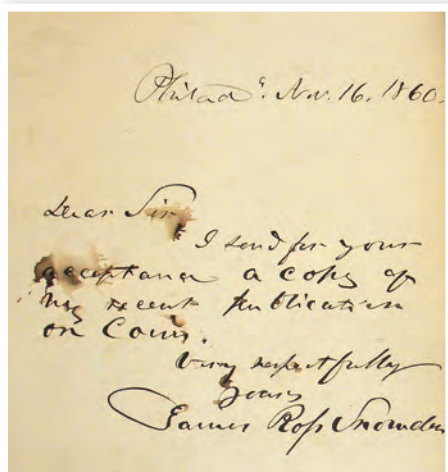 Philadª. Nov. 16. 1860.
Dear Sir
I send for your
acceptance a copy of
my recent publication
on Coins.
Very respectfully
yours
James Ross Snowden